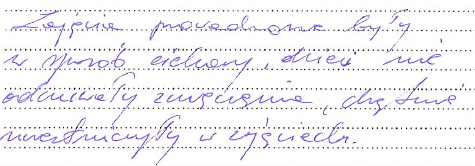 Zajęcia prowadzone były
w sposób ciekawy, dzieci nie
odczuwały zmęczenia, chętnie
uczestniczyły w zajęciach.